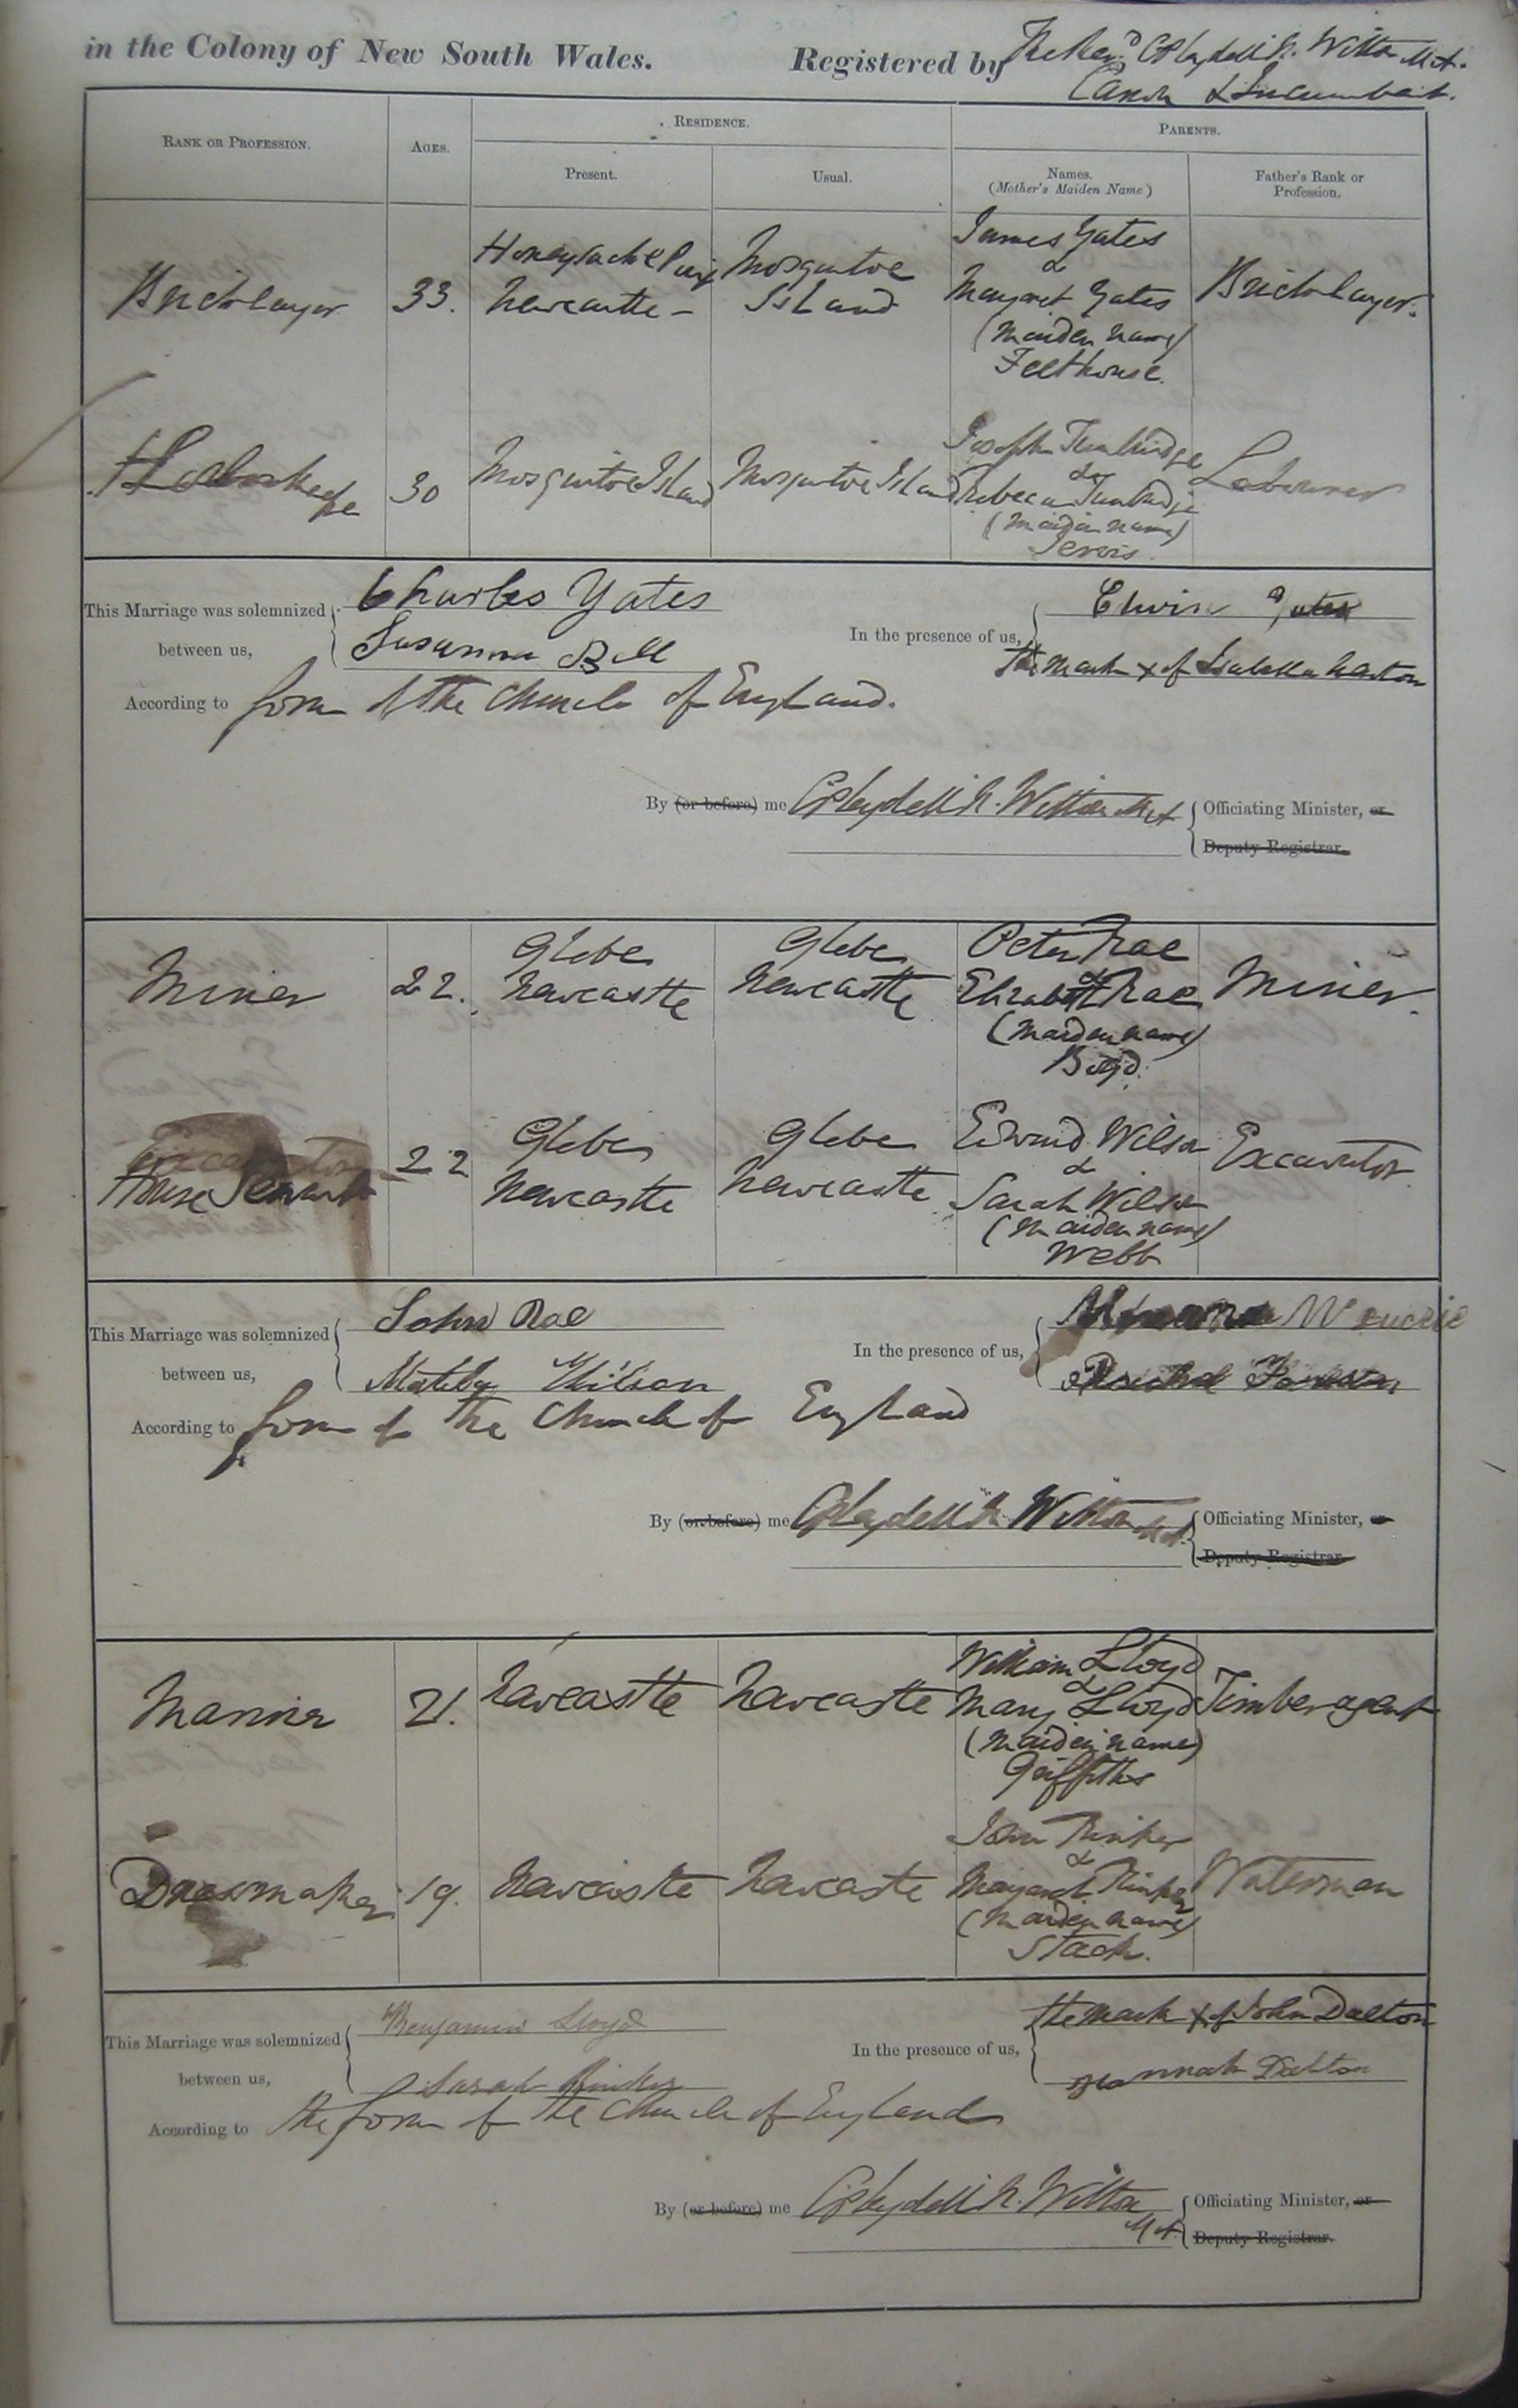 in the Colony of New South Wales. Registered by The Revd C Pleydell N. Wilton M.A.
Canon & Incumbent.
RANK OR PROFESSION. AGES. RESIDENCE. PARENTS.
Present. Usual. Names. (Mother's Maiden Name) Father's Rank or Profession.
James Yates
&
Bricklayer 33. Honeysuckle Point Newcastle - Mosquitoe Island Margaret Yates Bricklayer.
(Maiden name)
Felthouse.
Joseph Tunbridge
&
30 Mosquitoe Island Mosquitoe Island Rebecca Tunbridge Labourer
(Maiden name)
Jervis.
This Marriage was solemnized between us, Charles Yates
Susanna Bell
In the presence of us, Edwin Yates
The Mark x of Isabella
According to form of the Church of England.
By (or before) me C Pleydell N. Wilton M.A. Officiating Minister, or
Deputy Registrar.
Peter Rae
&
Miner 22. Glebe Newcastle Glebe Newcastle Elizabeth Rae Miner.
(Maiden name)
Boyd.
Edward Wilson
&
House Servant 22 Glebe Newcastle Glebe Newcastle Sarah Wilson Excavator
(Maiden name)
Webb
This Marriage was solemnized between us, John Rae
Matilda Wilson
In the presence of us,
According to form of the Church of England
By (or before) me C Pleydell N. Wilton M.A. Officiating Minister, or
Deputy Registrar
William Lloyd
&
Mariner 21. Newcastle Newcastle Mary Lloyd Timber agent
(Maiden name)
Griffiths
John Rinker
&
Dressmaker 19. Newcastle Newcastle Margaret Rinker Waterman
(Maiden name)
Stack.
This Marriage was solemnized between us, Benjamin Lloyd
Sarah Rinker
In the presence of us, The Mark x of John Dalton
Hannah Dalton
According to the form of the Church of England
By (or before) me C Pleydell N. Wilton M.A. Officiating Minister, or
Deputy Registrar.